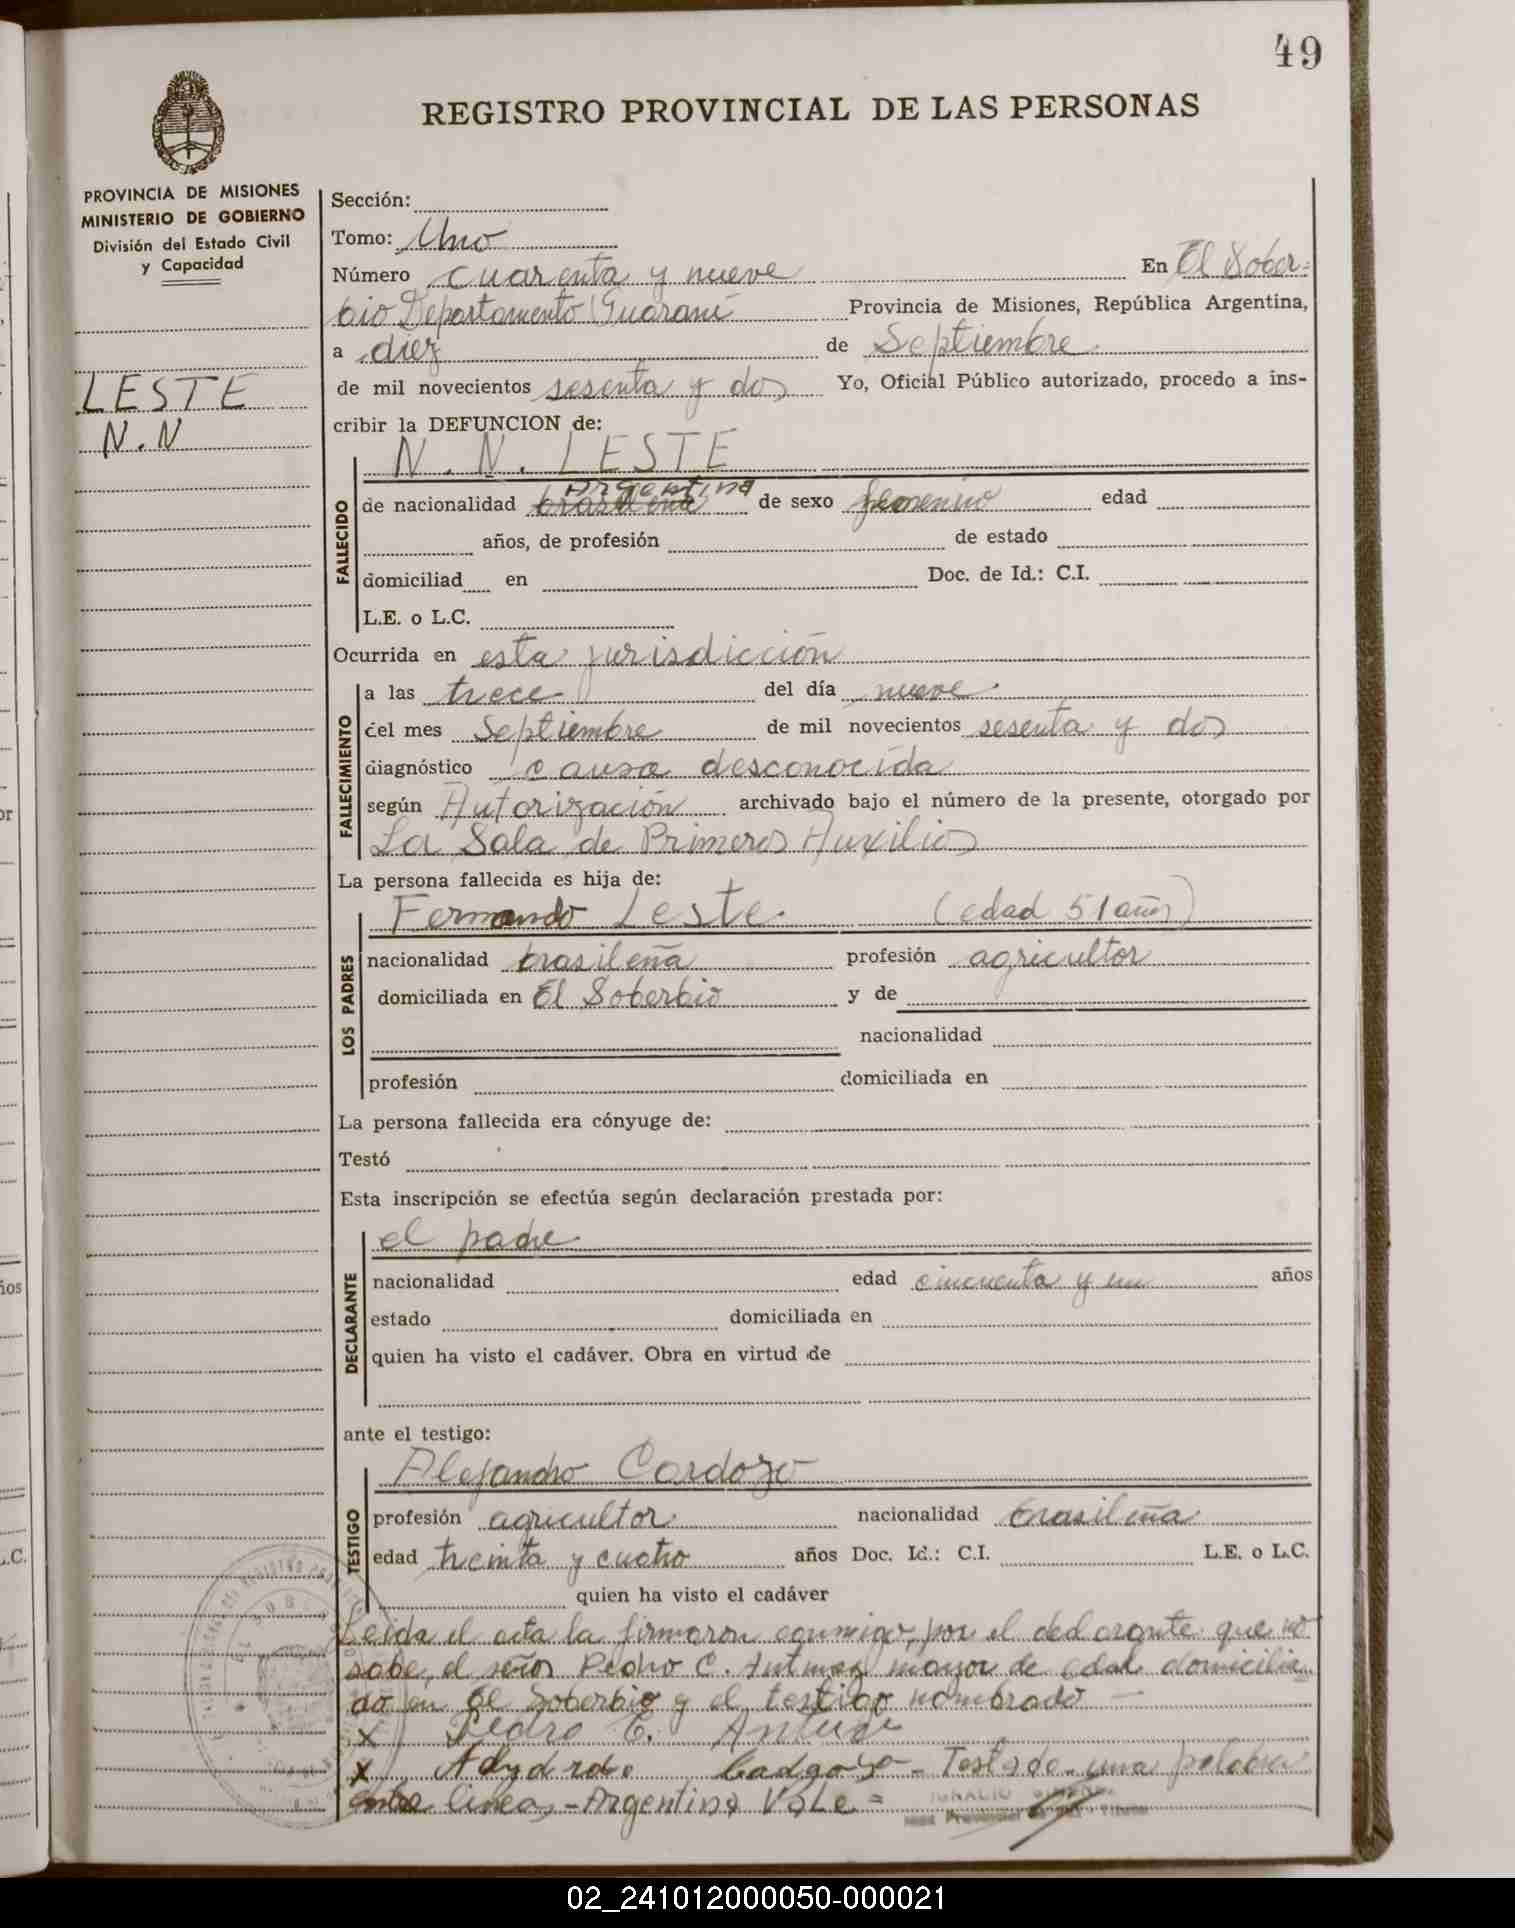 49
REGISTRO PROVINCIAL DE LAS PERSONAS
PROVINCIA DE MISIONES
MINISTERIO DE GOBIERNO
División del Estado Civil
y Capacidad
LESTE
N.N
Sección:
Tomo: Uno
Número cuarenta y nueve En El Sober-
bio Departamento Guaraní Provincia de Misiones, República Argentina,
a diez de Septiembre
de mil novecientos sesenta y dos Yo, Oficial Público autorizado, procedo a ins-
cribir la DEFUNCION de:
N. N. LESTE
FALLECIDO
Argentina
de nacionalidad brasileña de sexo femenino edad
años, de profesión de estado
domiciliad en Doc. de Id.: C.I.
L.E. o L.C.
Ocurrida en esta jurisdicción
FALLECIMIENTO
a las trece del día nueve
del mes Septiembre de mil novecientos sesenta y dos
diagnóstico causa desconocida
según Autorización archivado bajo el número de la presente, otorgado por
La Sala de Primeros Auxilios
La persona fallecida es hija de:
LOS PADRES
Fernando Leste (edad 51 años)
nacionalidad brasileña profesión agricultor
domiciliada en El Soberbio y de
nacionalidad
profesión domiciliada en
La persona fallecida era cónyuge de:
Testó
Esta inscripción se efectúa según declaración prestada por:
DECLARANTE
el padre
nacionalidad edad cincuenta y un años
estado domiciliada en
quien ha visto el cadáver. Obra en virtud de
ante el testigo:
TESTIGO
Alejandro Cordozo
profesión agricultor nacionalidad brasileña
edad treinta y cuatro años Doc. Id.: C.I. L.E. o L.C.
quien ha visto el cadáver
Leida el acta la firmaron conmigo, por el declarante que no
sabe, el señor Pedro C. mayor de edad domicilia
do en El Soberbio y el testigo nombrado —
x Pedro C.
x - Testado una palabra
entre lineas - Argentina Vale =
02_241012000050-000021